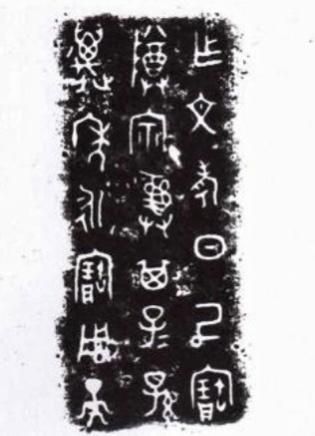 乍文考日己寶
尊宗彝其子子孫孫
萬年永寶用天